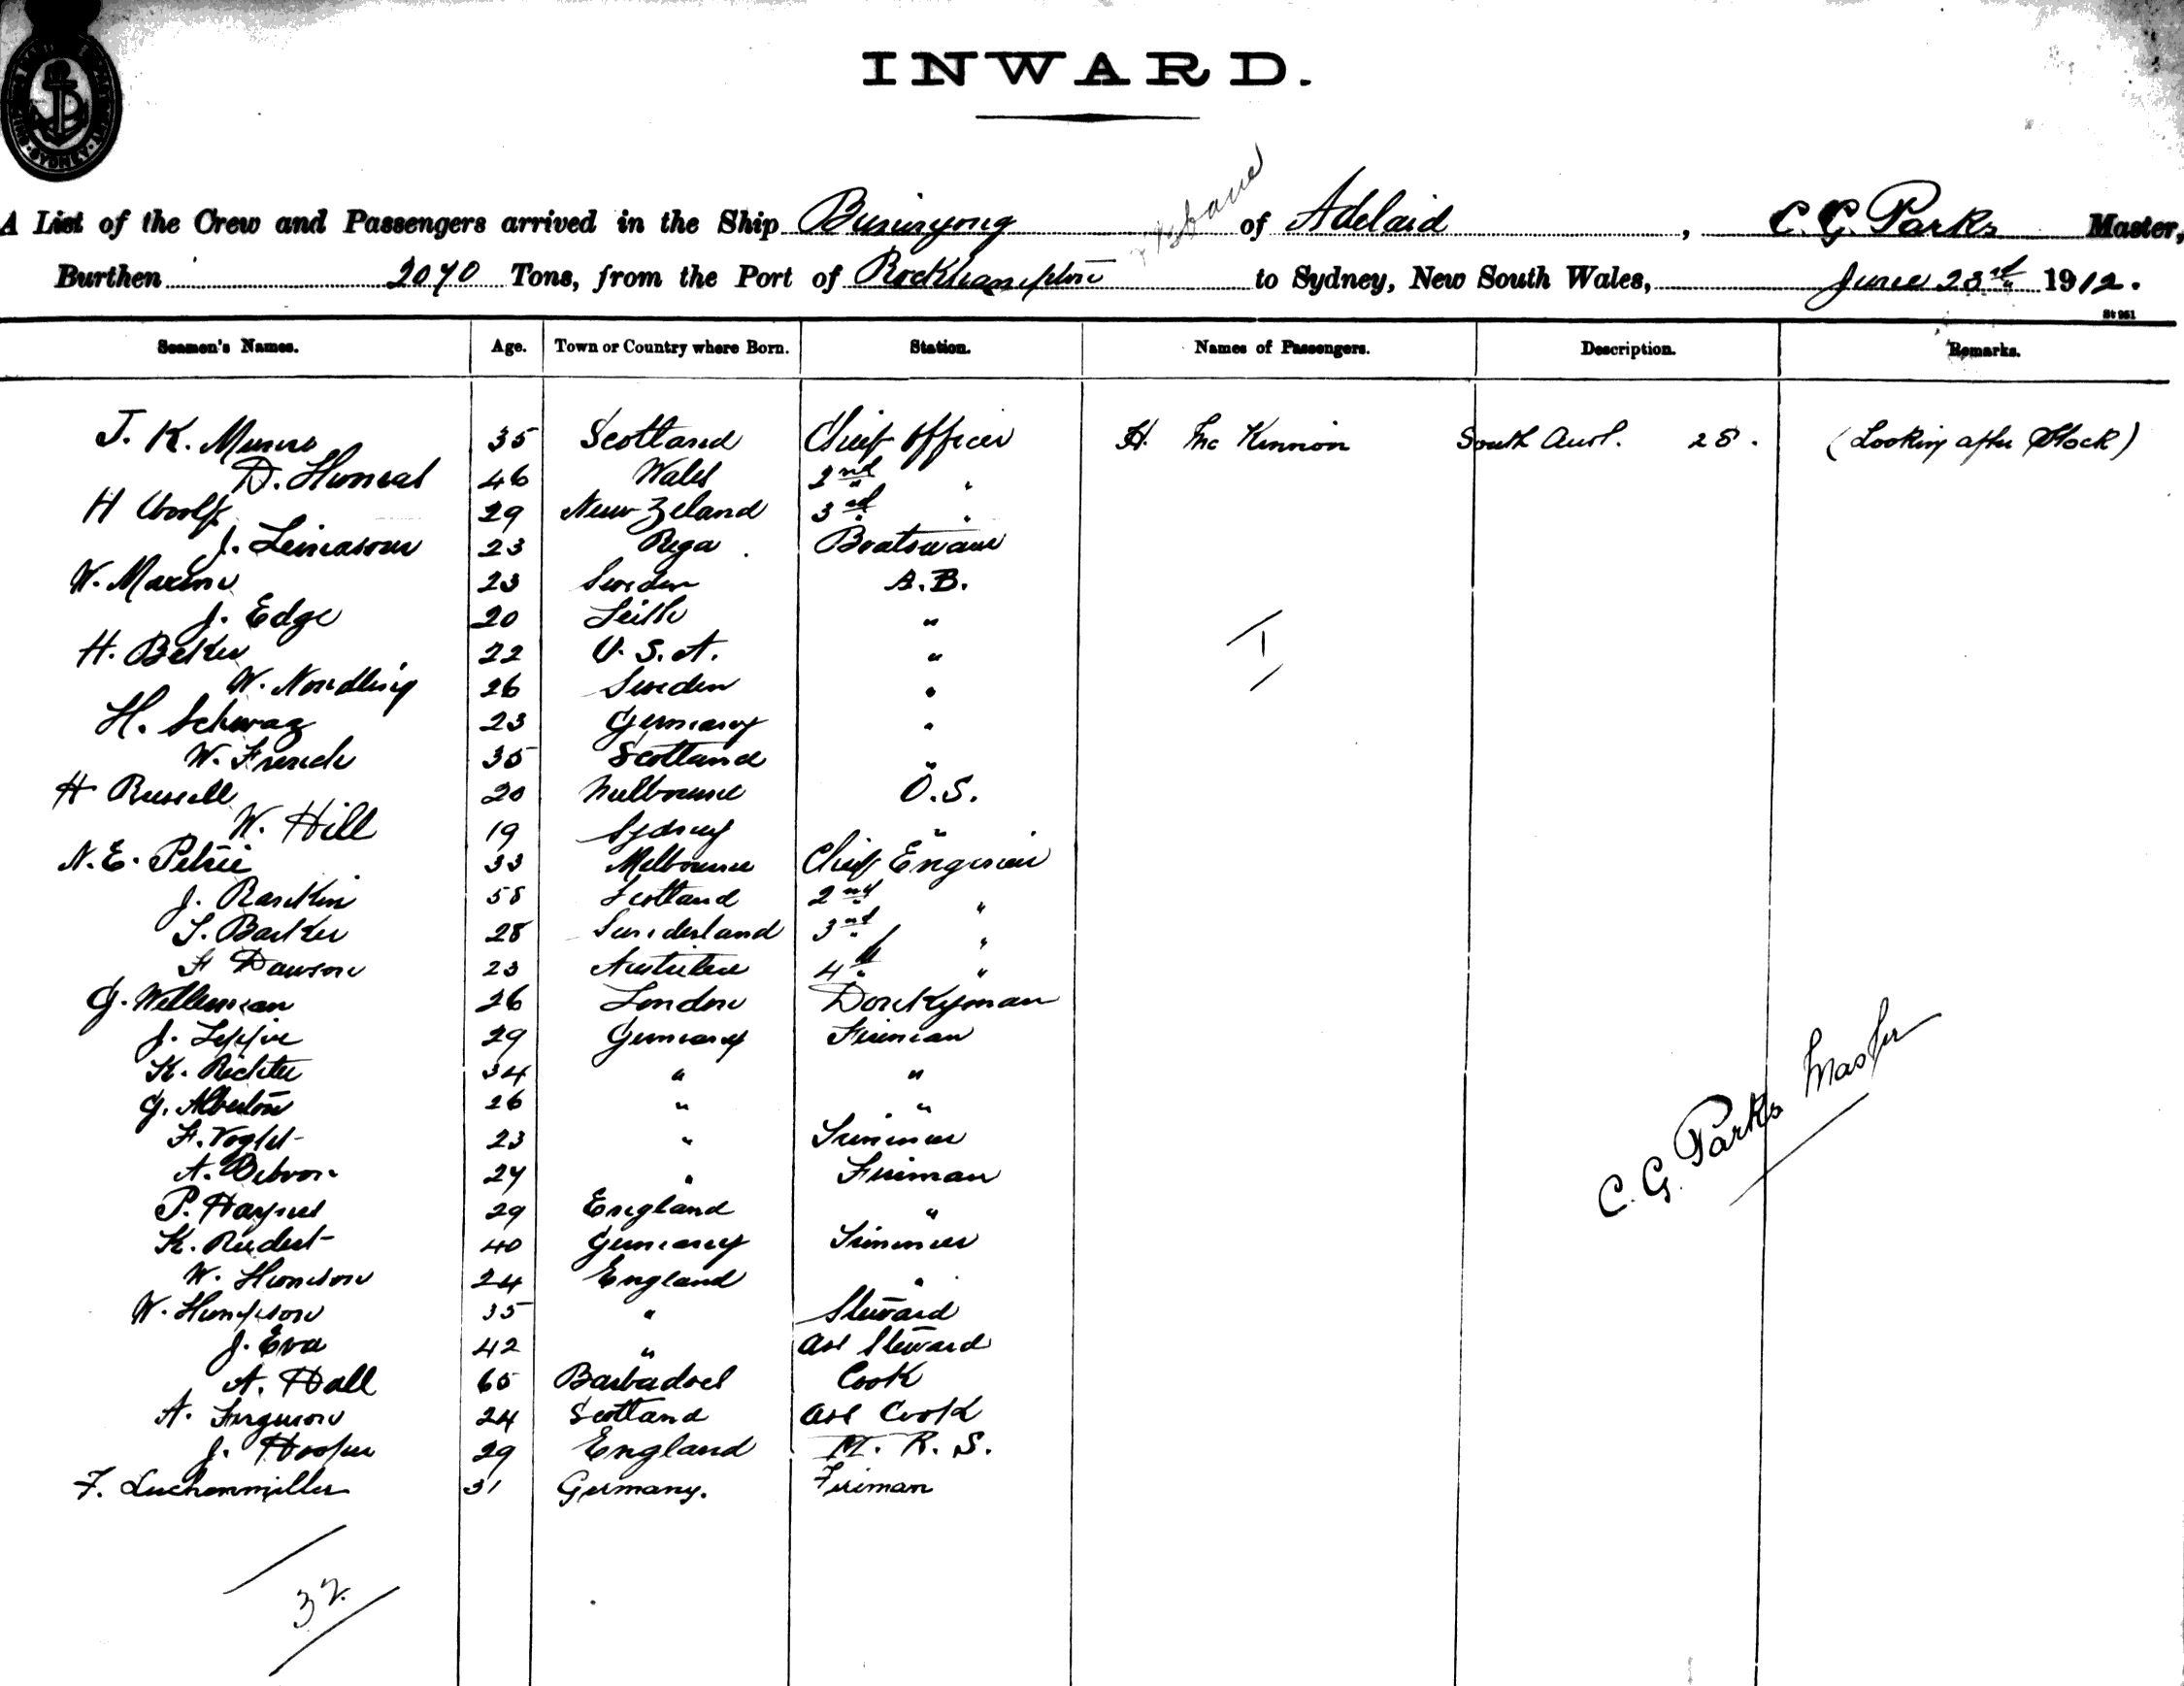 SYDNEY
INWARD.
A List of the Crew and Passengers arrived in the Ship Buninyong of Adelaid, C. G. Parks Master,
Burthen 2070 Tons, from the Port of Rockhampton & Brisbane to Sydney, New South Wales, June 23rd 1912.
St 961
Seamen's Names. Age. Town or Country where Born. Station. Names of Passengers. Description. Remarks.
J. K. Munro 35 Scotland Chief Officer H. McKinnon South Aust. 28. (Looking after Stock)
D. 46 Wales 2nd "
H Woolf 29 New Zeland 3rd "
J. 23 Rega Boatswane
W. 23 Sweden A.B.
J. Edge 20 Leith "
H. Beker 22 U.S.A. "
W. Nordling 26 Sweden "
H. Schwaz 23 Germany "
W. French 35 Scotland "
H Russell 20 Melbourne O.S.
W. Hill 19 Sydney "
N. E. Petrie 33 Melbourne Chief Engineer
J. Rankin 58 Scotland 2nd "
S. Barker 28 Sunderland 3rd "
F Dawson 23 4th "
G. Welleman 26 London Donkeyman
J. 29 Germany Fireman
K. Richter 34 " "
G. 26 " "
F. 23 " Trimmer
A. 24 " Fireman
P. 29 England "
K. 40 Germany Trimmer
W. 24 England "
W. 35 " Steward
J. Eva 42 " Ass Steward
A. Hall 65 Barbadoes Cook
A. Ferguson 24 Scotland Ass Cook
J. Hooper 29 England M. R. S.
F. Luchenmiller 31 Germany. Fireman
32
1
C. G. Parks Master